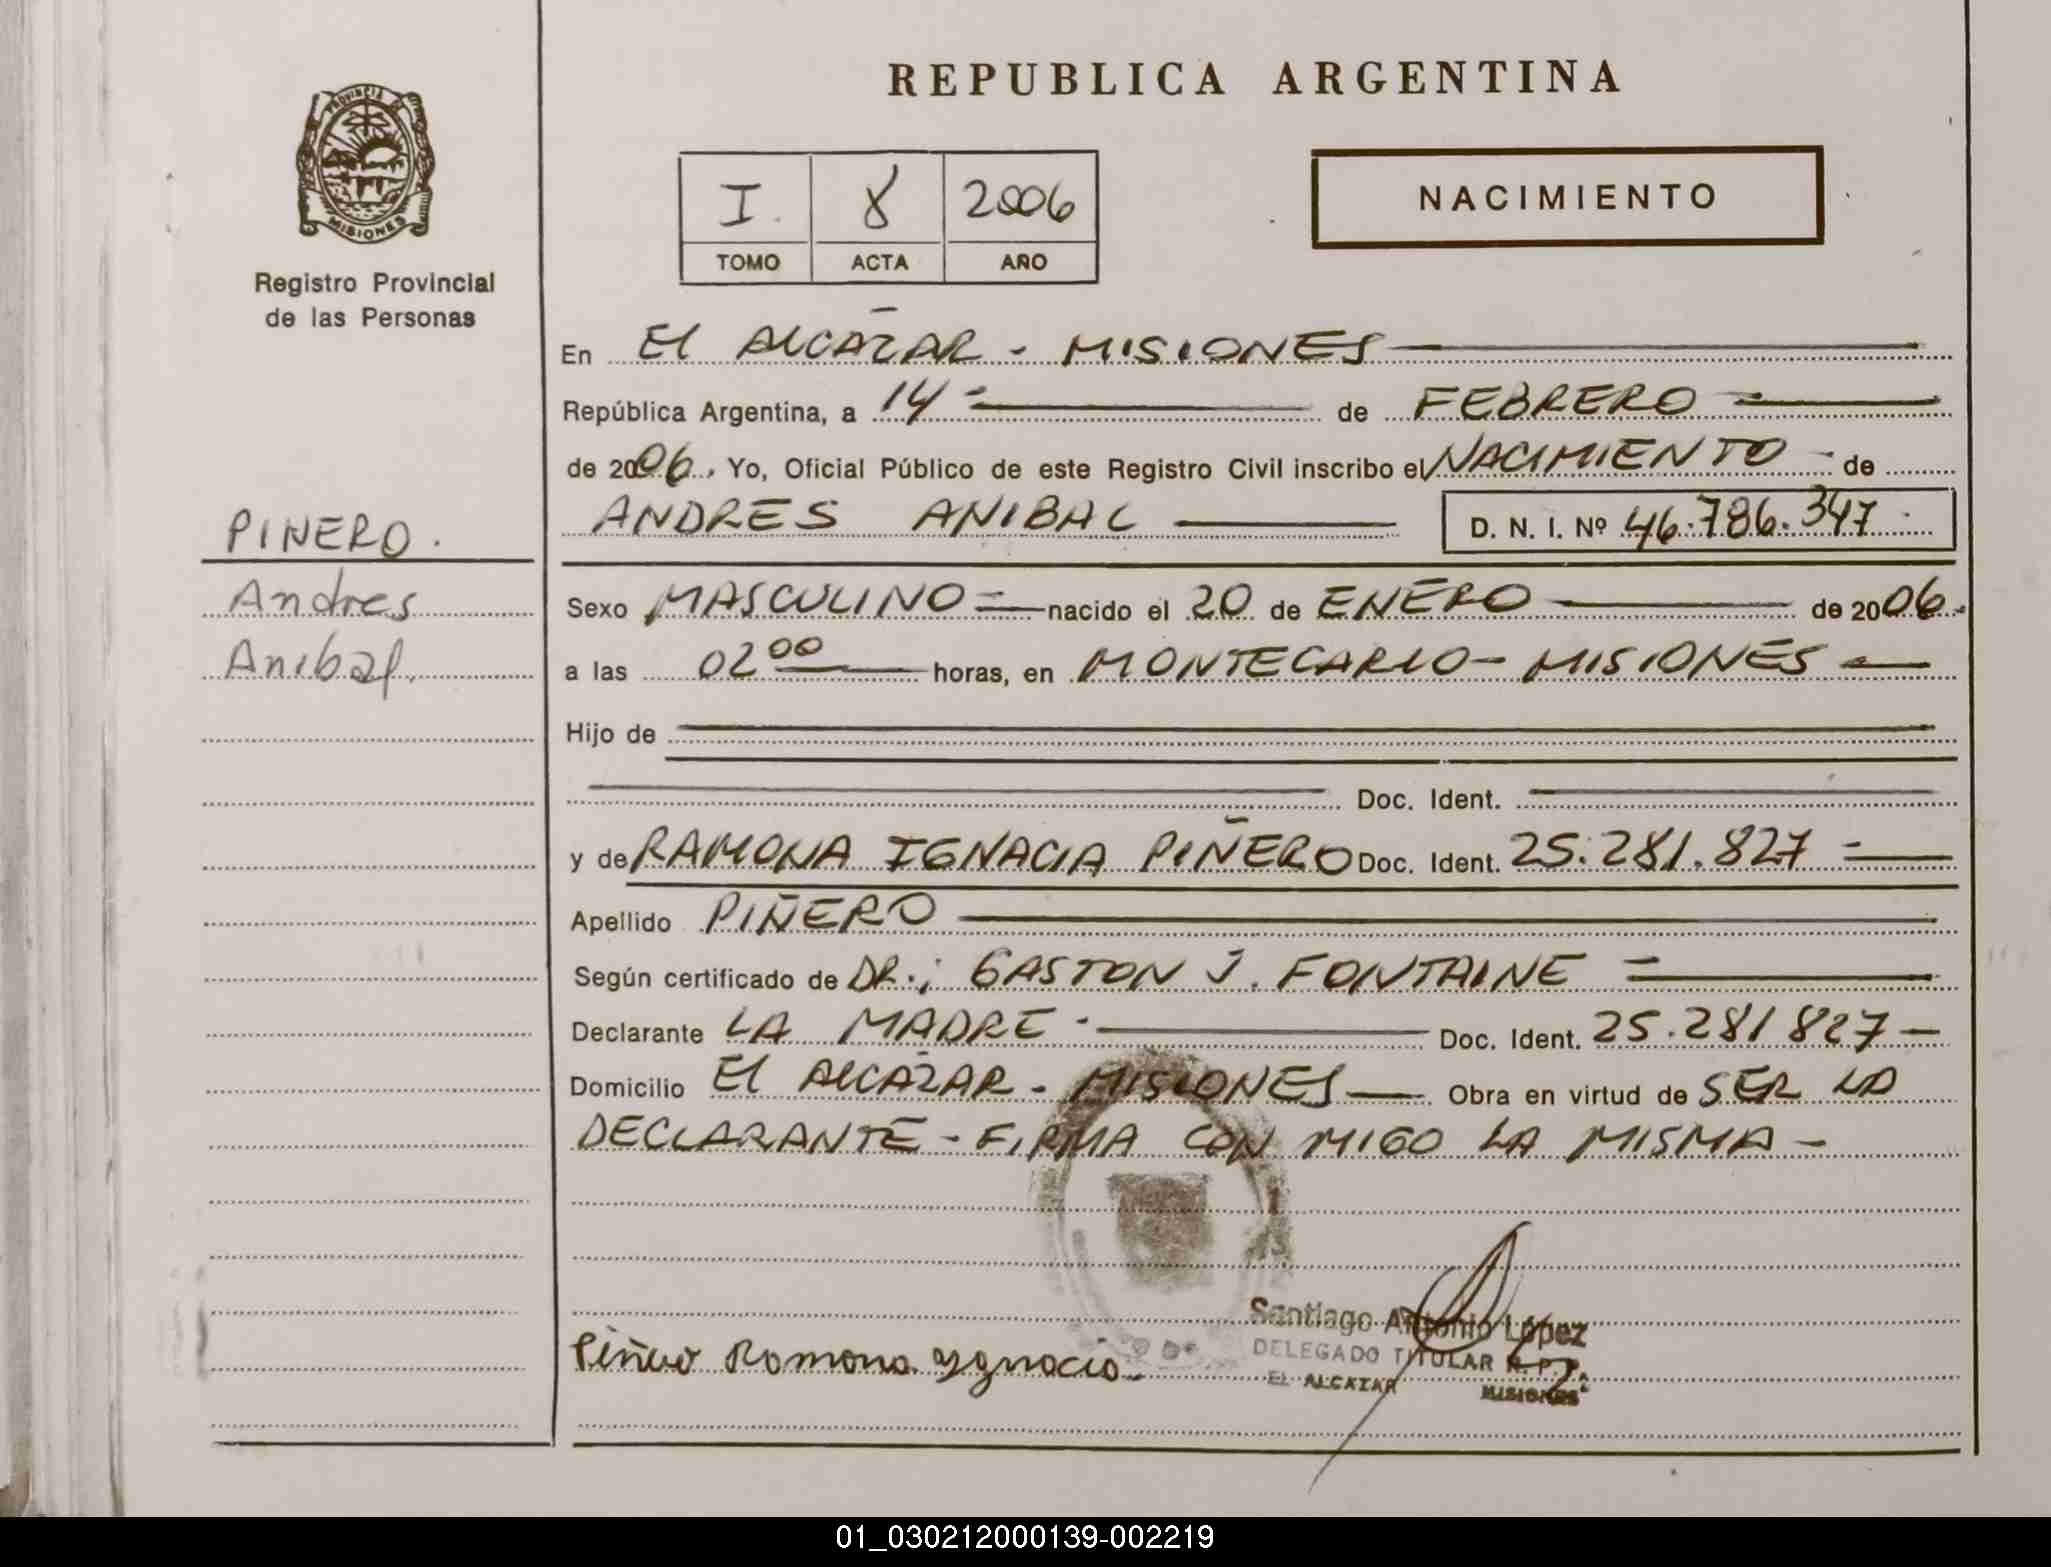 REPUBLICA ARGENTINA
PROVINCIA DE
MISIONES
Registro Provincial
de las Personas
I. 8 2006
TOMO ACTA AÑO
NACIMIENTO
En El ALCAZAR - MISIONES
República Argentina, a 14 - de FEBRERO -
de 2006. Yo, Oficial Público de este Registro Civil inscribo el NACIMIENTO - de
ANDRES ANIBAL D. N. I. Nº 46.786.347
PIÑERO.
Andres
Anibal.
Sexo MASCULINO - nacido el 20 de ENERO de 2006.
a las 02 00 horas, en MONTECARLO - MISIONES -
Hijo de
Doc. Ident.
y de RAMONA IGNACIA PIÑERO Doc. Ident. 25.281.827 -
Apellido PIÑERO
Según certificado de DR.; GASTON J. FONTAINE -
Declarante LA MADRE - Doc. Ident. 25.281827 -
Domicilio El ALCAZAR - MISIONES Obra en virtud de SER LA
DECLARANTE - FIRMA CON MIGO LA MISMA -
Santiago Antonio López
DELEGADO TITULAR R. P. P.
EL ALCAZAR MISIONES
Piñero Ramona Ygnacia
01_030212000139-002219